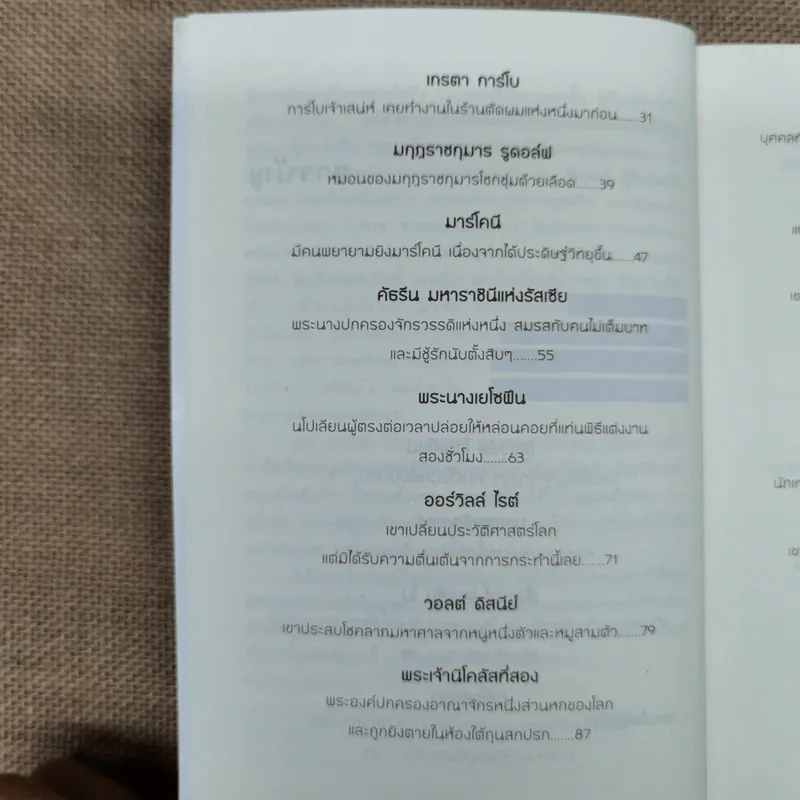 เกรตา การ์โบ
การ์โบเจ้าเสน่ห์ เคยทำงานในร้านตัดผมแห่งหนึ่งมาก่อน......31
มกุฎราชกุมาร รูดอล์ฟ
หมอนของมกุฎราชกุมารโชกชุ่มด้วยเลือด.......39
มาร์โคนี
มีคนพยายามยิงมาร์โคนี เนื่องจากได้ประดิษฐ์วิทยุขึ้น......47
คัธรีน มหาราชินีแห่งรัสเซีย
พระนางปกครองจักรวรรดิแห่งหนึ่ง สมรสกับคนไม่เต็มบาท
และมีชู้รักนับตั้งสิบๆ.......55
พระนางเยโซฟีน
นโปเลียนผู้ตรงต่อเวลาปล่อยให้หล่อนคอยที่แท่นพิธีแต่งงาน
สองชั่วโมง.......63
ออร์วิลล์ ไรต์
เขาเปลี่ยนประวัติศาสตร์โลก
แต่มิได้รับความตื่นเต้นจากการกระทำนี้เลย.......71
วอลต์ ดิสนีย์
เขาประสบโชคลาภมหาศาลจากหนูหนึ่งตัวและหมูสามตัว......79
พระเจ้านิโคลัสที่สอง
พระองค์ปกครองอาณาจักรหนึ่งส่วนหกของโลก
และถูกยิงตายในห้องใต้ถุนสกปรก.......87
บุคคลที่
แต่
เข
นักเ
เข